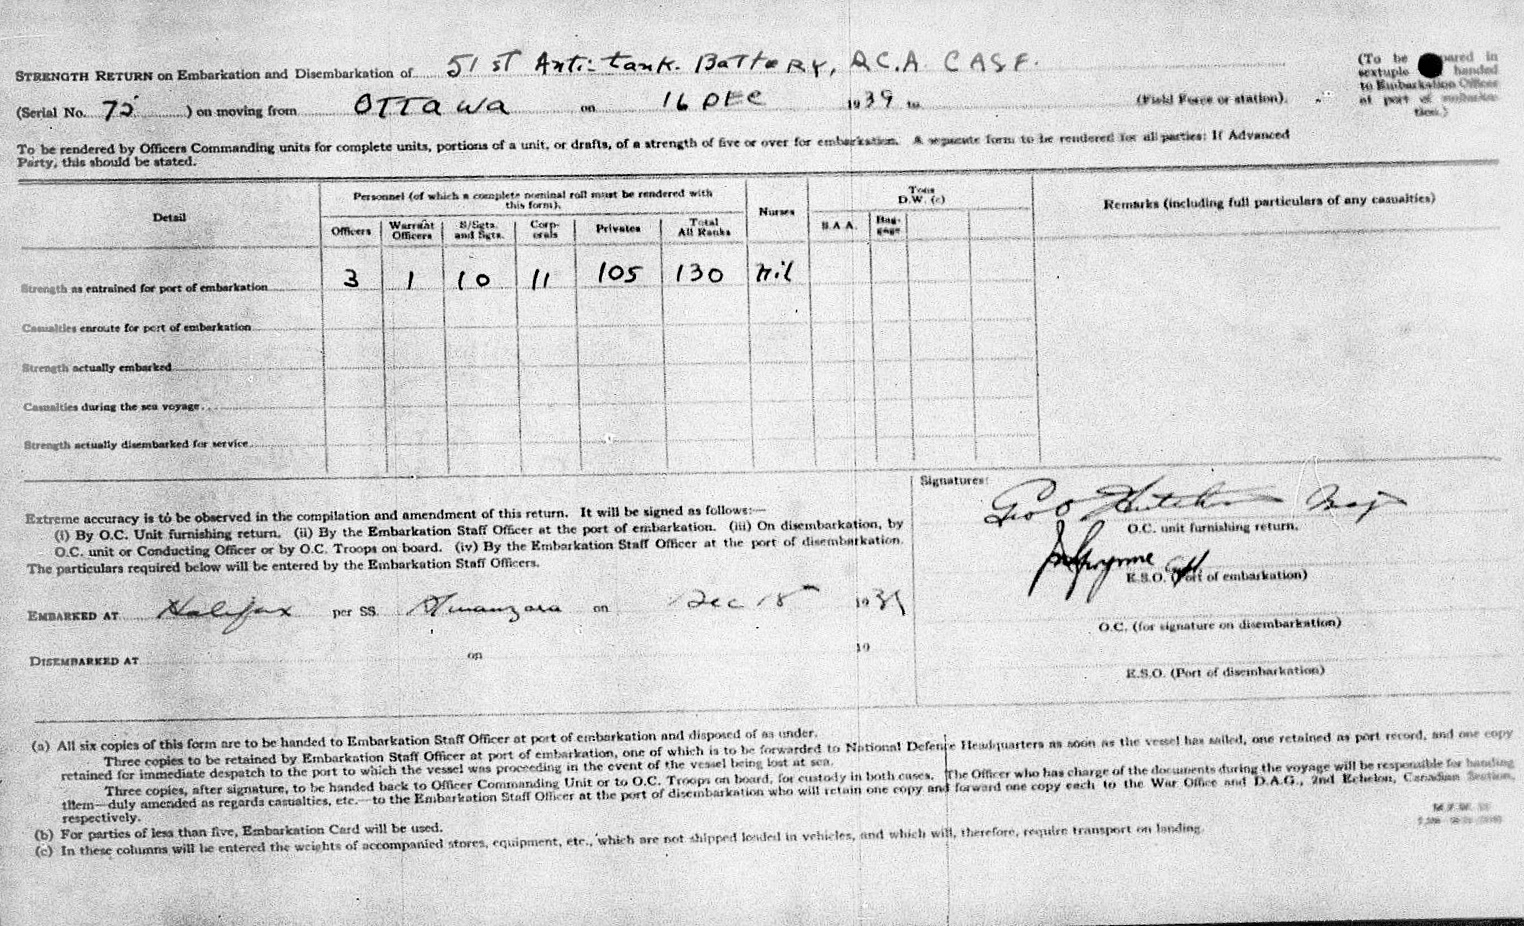 STRENGTH RETURN on Embarkation and Disembarkation of 51st Anti-tank. Battery, R.C.A. CASF.
(To be pared in
sextuple handed
to Embarkation Officer
at port of embarka-
tion.)
(Serial No. 75 ) on moving from OTTAWA on 16 DEC 1939 to (Field Force or station).
To be rendered by Officers Commanding units for complete units, portions of a unit, or drafts, of a strength of five or over for embarkation. A separate form to be rendered for all parties: If Advanced
Party, this should be stated.
Detail
Personnel (of which a complete nominal roll must be rendered with
this form).
Nurses
Tons
D.W. (c)
Remarks (including full particulars of any casualties)
Officers
Warrant
Officers
S/Sgts.
and Sgts.
Corp-
orals
Privates
Total
All Ranks
S.A.A.
Bag-
gage
Strength as entrained for port of embarkation 3 1 10 11 105 130 nil
Casualties enroute for port of embarkation
Strength actually embarked
Casualties during the sea voyage
Strength actually disembarked for service
Extreme accuracy is to be observed in the compilation and amendment of this return. It will be signed as follows:—
(i) By O.C. Unit furnishing return. (ii) By the Embarkation Staff Officer at the port of embarkation. (iii) On disembarkation, by
O.C. unit or Conducting Officer or by O.C. Troops on board. (iv) By the Embarkation Staff Officer at the port of disembarkation.
The particulars required below will be entered by the Embarkation Staff Officers.
EMBARKED AT Halifax per SS. on Dec 18 1939
DISEMBARKED AT on 19
Signatures:
Geo Maj
O.C. unit furnishing return.
Capt
E.S.O. (Port of embarkation)
O.C. (for signature on disembarkation)
E.S.O. (Port of disembarkation)
(a) All six copies of this form are to be handed to Embarkation Staff Officer at port of embarkation and disposed of as under.
Three copies to be retained by Embarkation Staff Officer at port of embarkation, one of which is to be forwarded to National Defence Headquarters as soon as the vessel has sailed, one retained as port record, and one copy
retained for immediate despatch to the port to which the vessel was proceeding in the event of the vessel being lost at sea.
Three copies, after signature, to be handed back to Officer Commanding Unit or to O.C. Troops on board, for custody in both cases. The Officer who has charge of the documents during the voyage will be responsible for handing
them—duly amended as regards casualties, etc.—to the Embarkation Staff Officer at the port of disembarkation who will retain one copy and forward one copy each to the War Office and D.A.G., 2nd Echelon, Canadian Section,
respectively.
(b) For parties of less than five, Embarkation Card will be used.
(c) In these columns will be entered the weights of accompanied stores, equipment, etc., which are not shipped loaded in vehicles, and which will, therefore, require transport on landing.